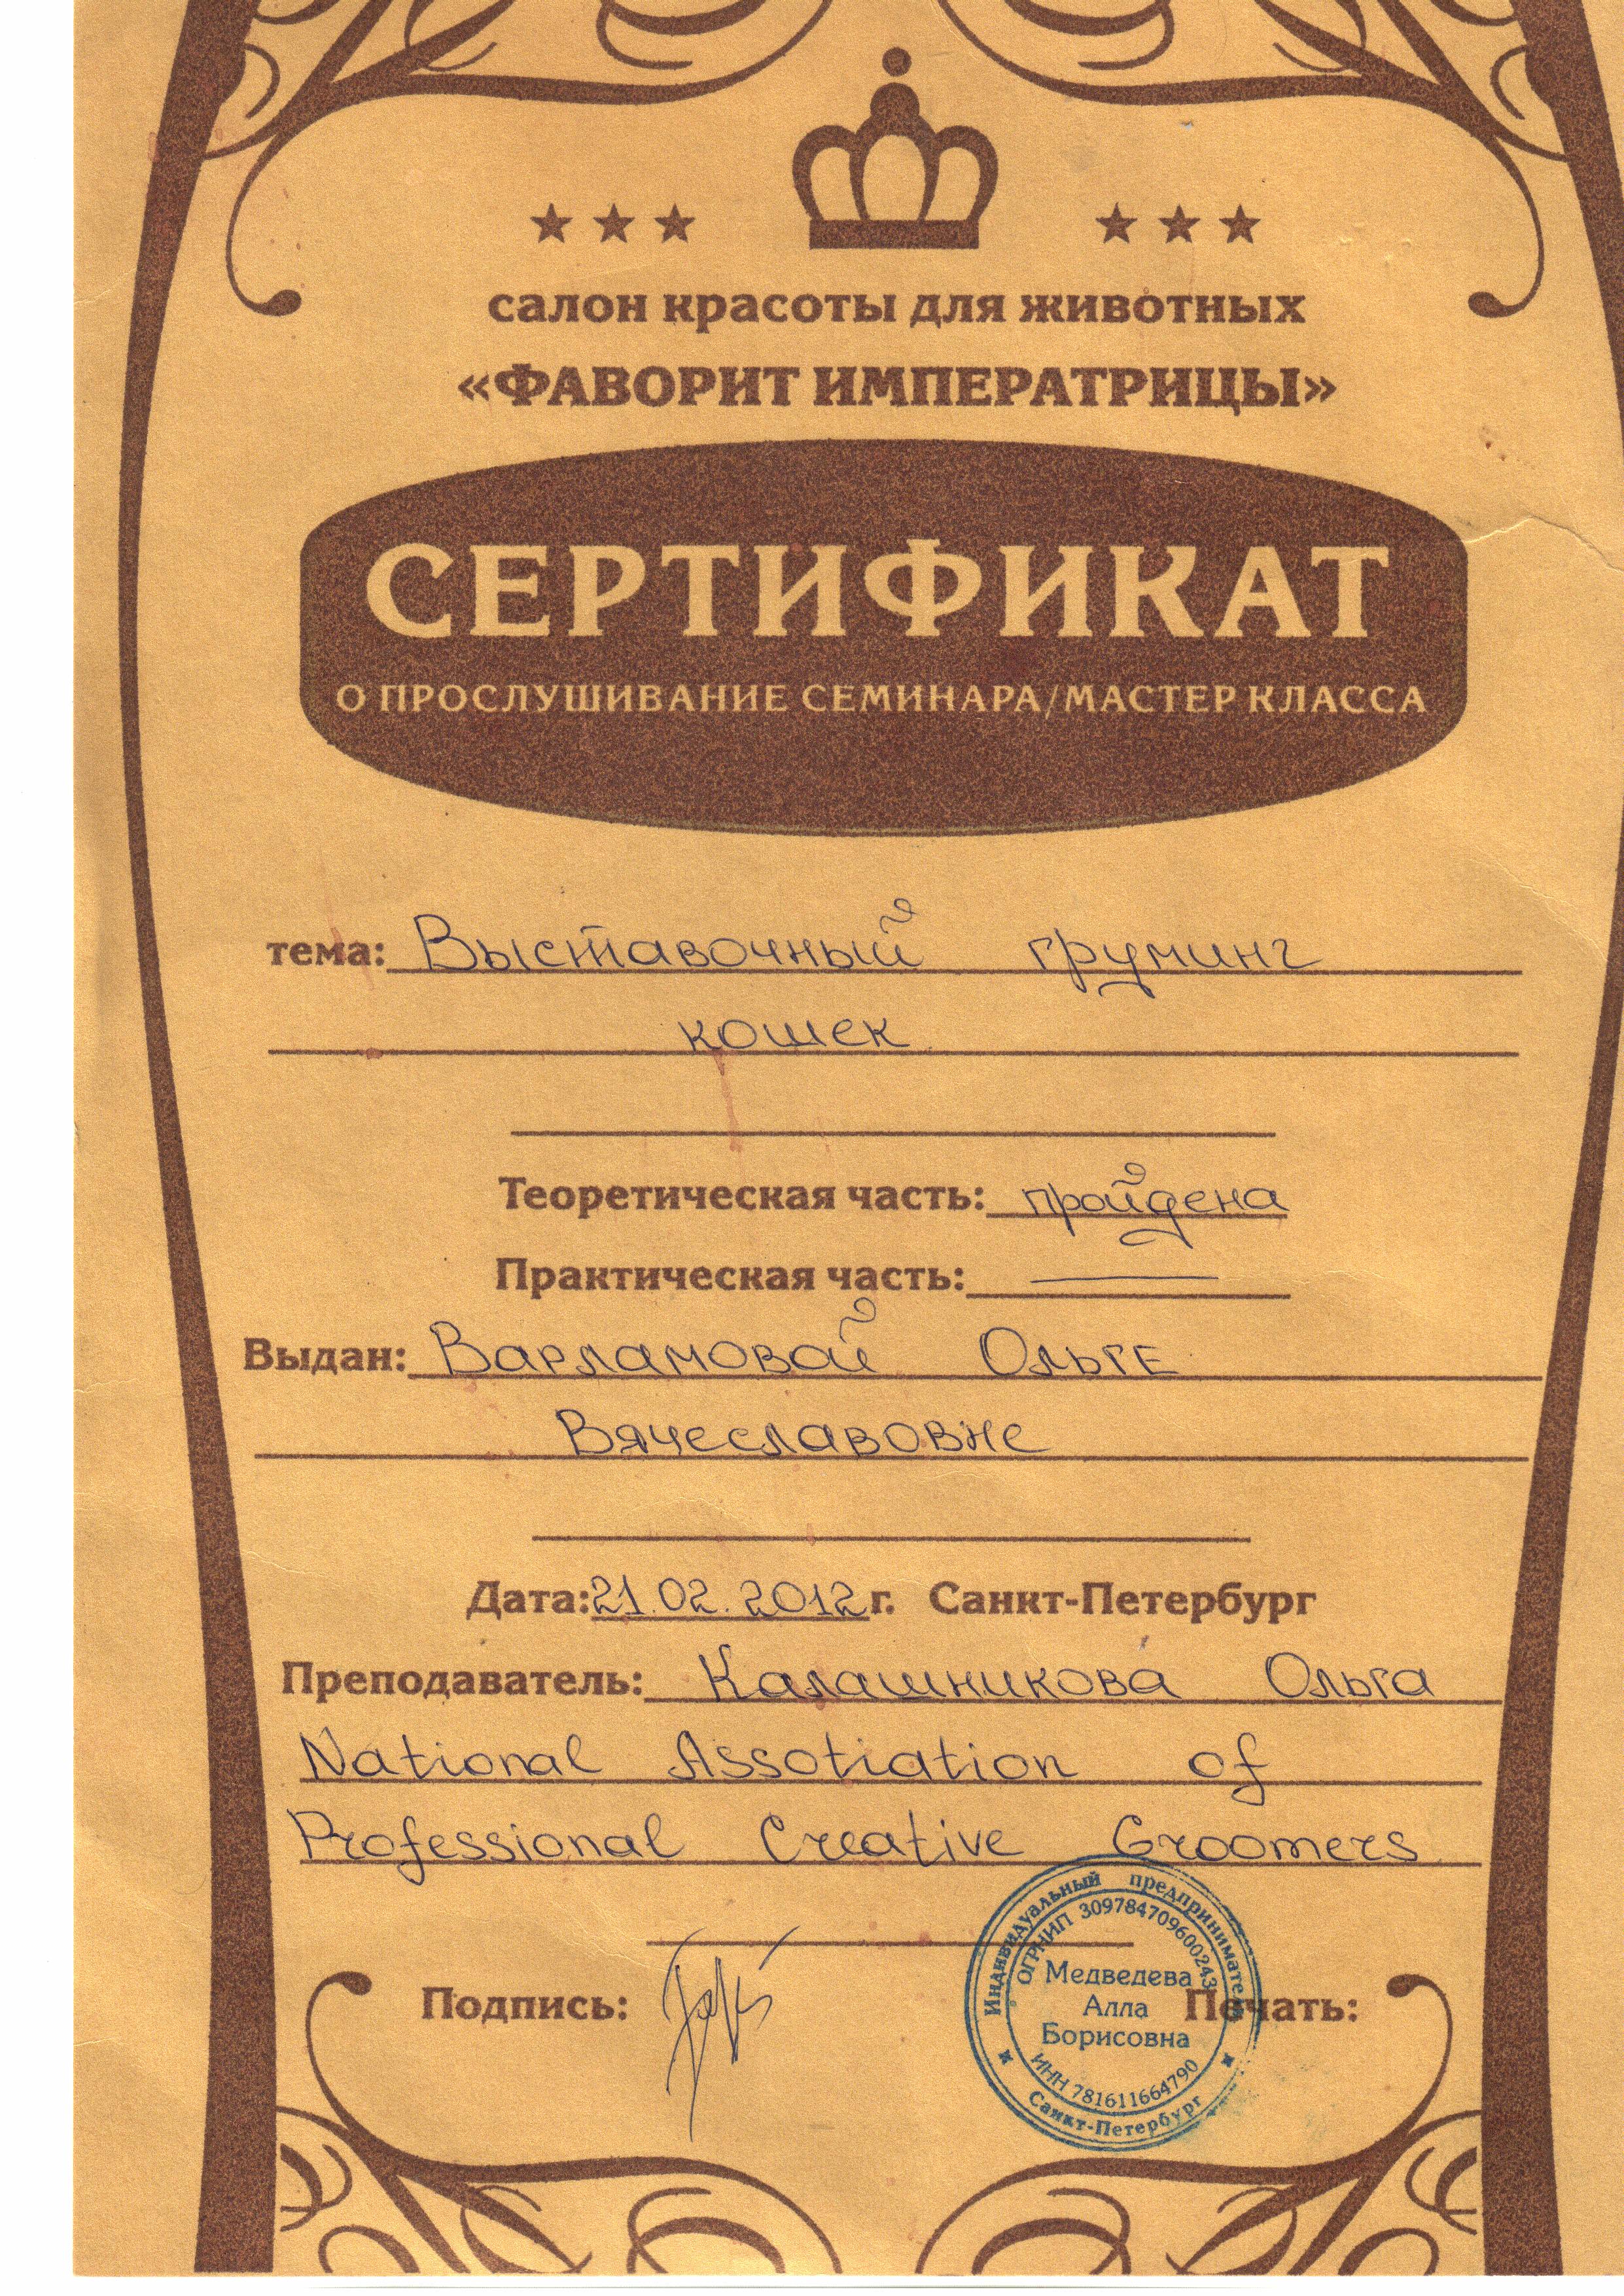 салон красоты для животных
«ФАВОРИТ ИМПЕРАТРИЦЫ»
СЕРТИФИКАТ
О ПРОСЛУШИВАНИЕ СЕМИНАРА/МАСТЕР КЛАССА
тема: Выставочный груминг
кошек
Теоретическая часть: пройдена
Практическая часть: —
Выдан: Варламовой Ольге
Вячеславовне
Дата: 21.02.2012 г. Санкт-Петербург
Преподаватель: Калашникова Ольга
National Assotiation of
Professional Creative Groomers
Подпись:
Печать:
Индивидуальный предприниматель
ОГРНИП 309784709600243
Медведева
Алла
Борисовна
ИНН 781611664790
Санкт-Петербург